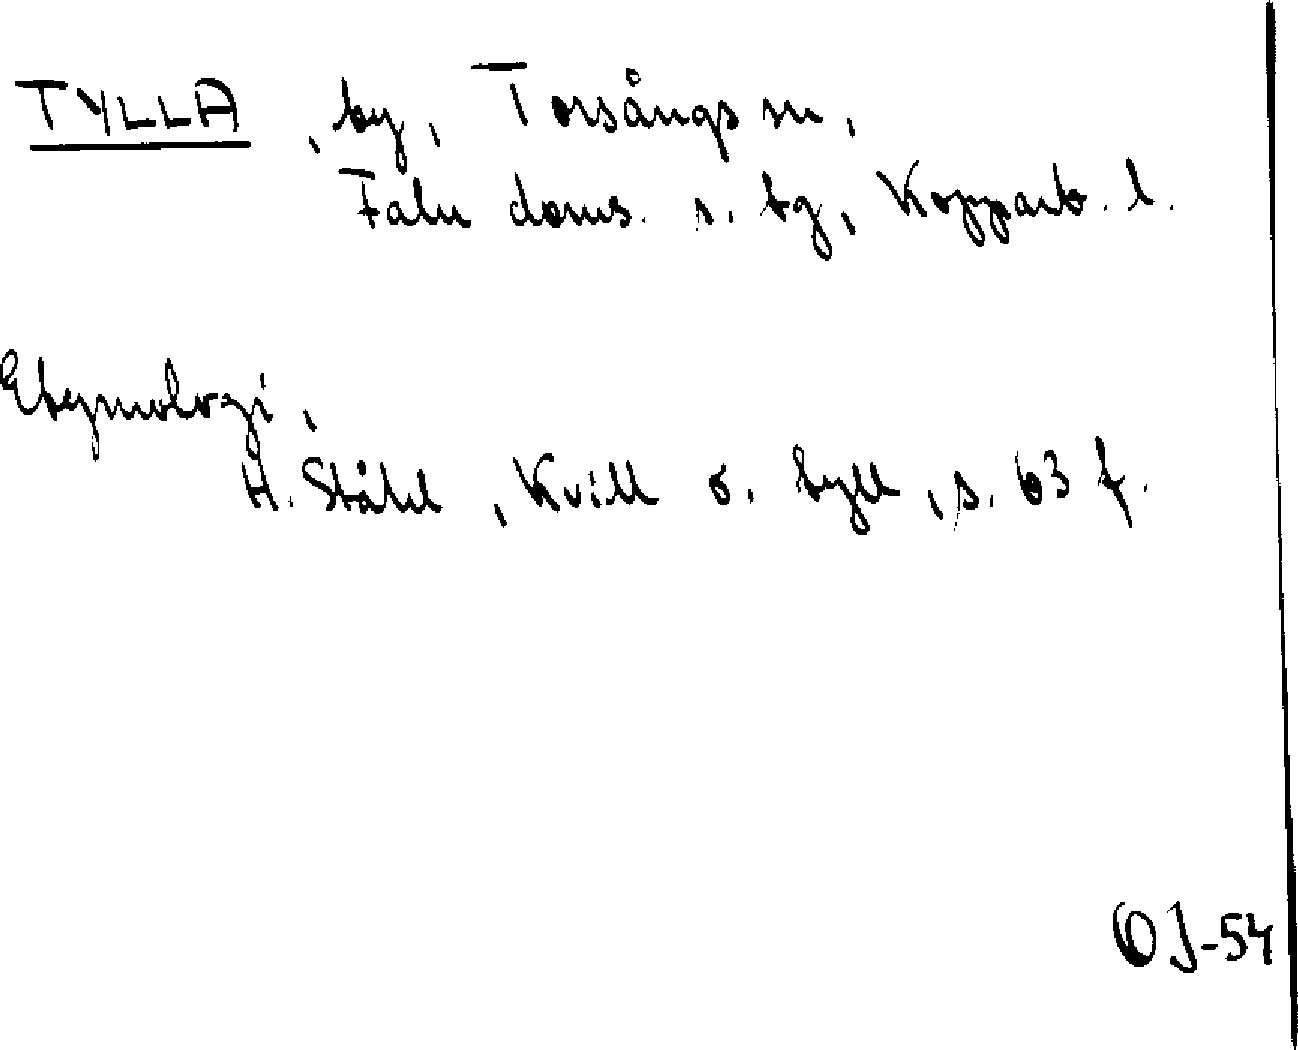 TYLLA, by, Torsångs sn,
Falu doms. s. tg, Kopparb. l.
Etymologi,
H. Ståhl, Kvill o. tyll, s. 63 f.
OJ-54